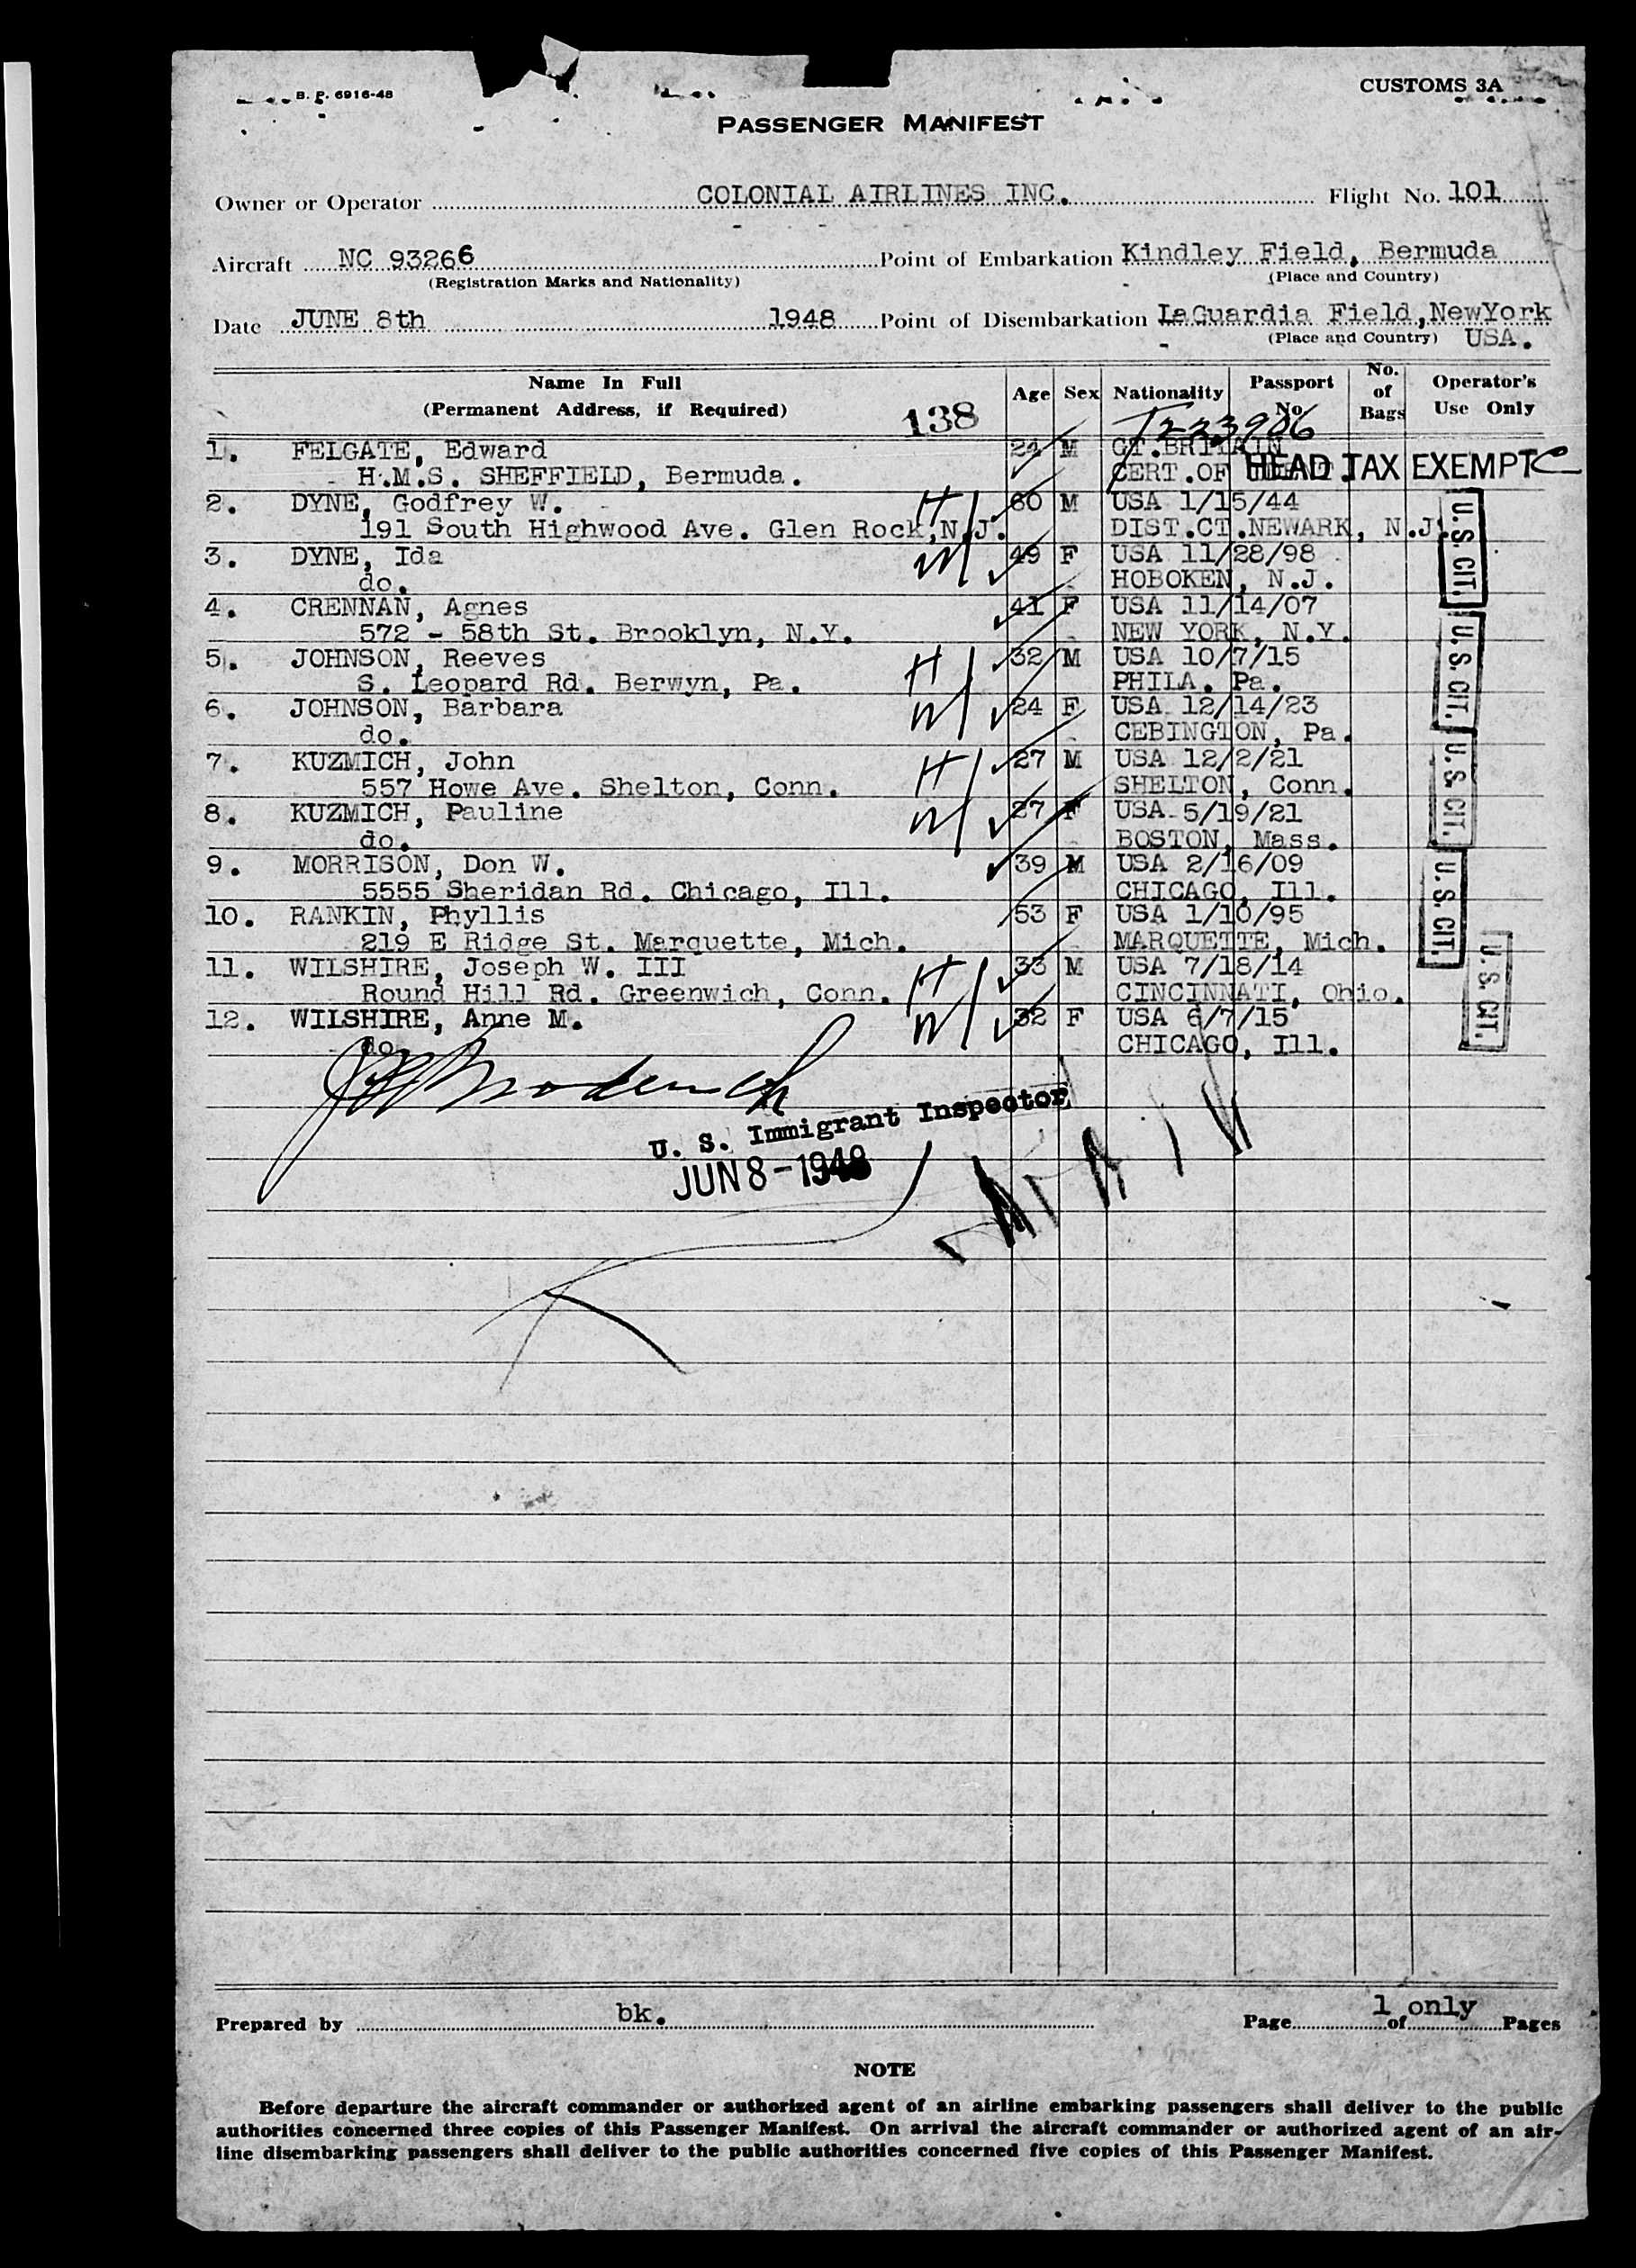 B. P. 6916-48
CUSTOMS 3A
PASSENGER MANIFEST
Owner or Operator COLONIAL AIRLINES INC. Flight No. 101
Aircraft NC 93266 Point of Embarkation Kindley Field, Bermuda
(Registration Marks and Nationality) (Place and Country)
Date JUNE 8th 1948 Point of Disembarkation LaGuardia Field, NewYork
(Place and Country) USA.
Name In Full (Permanent Address, if Required) Age Sex Nationality Passport No. No. of Bags Operator's Use Only
138
T223906
1. FELGATE, Edward 24 M GT.BRITAIN
H.M.S. SHEFFIELD, Bermuda. CERT.OF HEAD TAX EXEMPT
2. DYNE, Godfrey W. H 60 M USA 1/15/44
191 South Highwood Ave. Glen Rock,N.J. DIST.CT.NEWARK, N.J. U.S. CIT.
3. DYNE, Ida W 49 F USA 11/28/98
do. HOBOKEN, N.J.
4. CRENNAN, Agnes 41 F USA 11/14/07
572 - 58th St. Brooklyn, N.Y. NEW YORK, N.Y.
5. JOHNSON, Reeves H 32 M USA 10/7/15 U.S. CIT.
S. Leopard Rd. Berwyn, Pa. PHILA. Pa.
6. JOHNSON, Barbara W 24 F USA 12/14/23
do. CEBINGTON, Pa.
7. KUZMICH, John H 27 M USA 12/2/21 U.S. CIT.
557 Howe Ave. Shelton, Conn. SHELTON, Conn.
8. KUZMICH, Pauline W 27 F USA 5/19/21
do. BOSTON, Mass.
9. MORRISON, Don W. 39 M USA 2/16/09
5555 Sheridan Rd. Chicago, Ill. CHICAGO, Ill. U.S. CIT.
10. RANKIN, Phyllis 53 F USA 1/10/95
219 E Ridge St. Marquette, Mich. MARQUETTE, Mich.
11. WILSHIRE, Joseph W. III H 33 M USA 7/18/14 U.S. CIT.
Round Hill Rd. Greenwich, Conn. CINCINNATI, Ohio.
12. WILSHIRE, Anne M. W 32 F USA 6/7/15
do. CHICAGO, Ill.
U. S. Immigrant Inspector
JUN 8 - 1948
Prepared by bk. Page 1 of only Pages
NOTE
Before departure the aircraft commander or authorized agent of an airline embarking passengers shall deliver to the public
authorities concerned three copies of this Passenger Manifest. On arrival the aircraft commander or authorized agent of an air-
line disembarking passengers shall deliver to the public authorities concerned five copies of this Passenger Manifest.